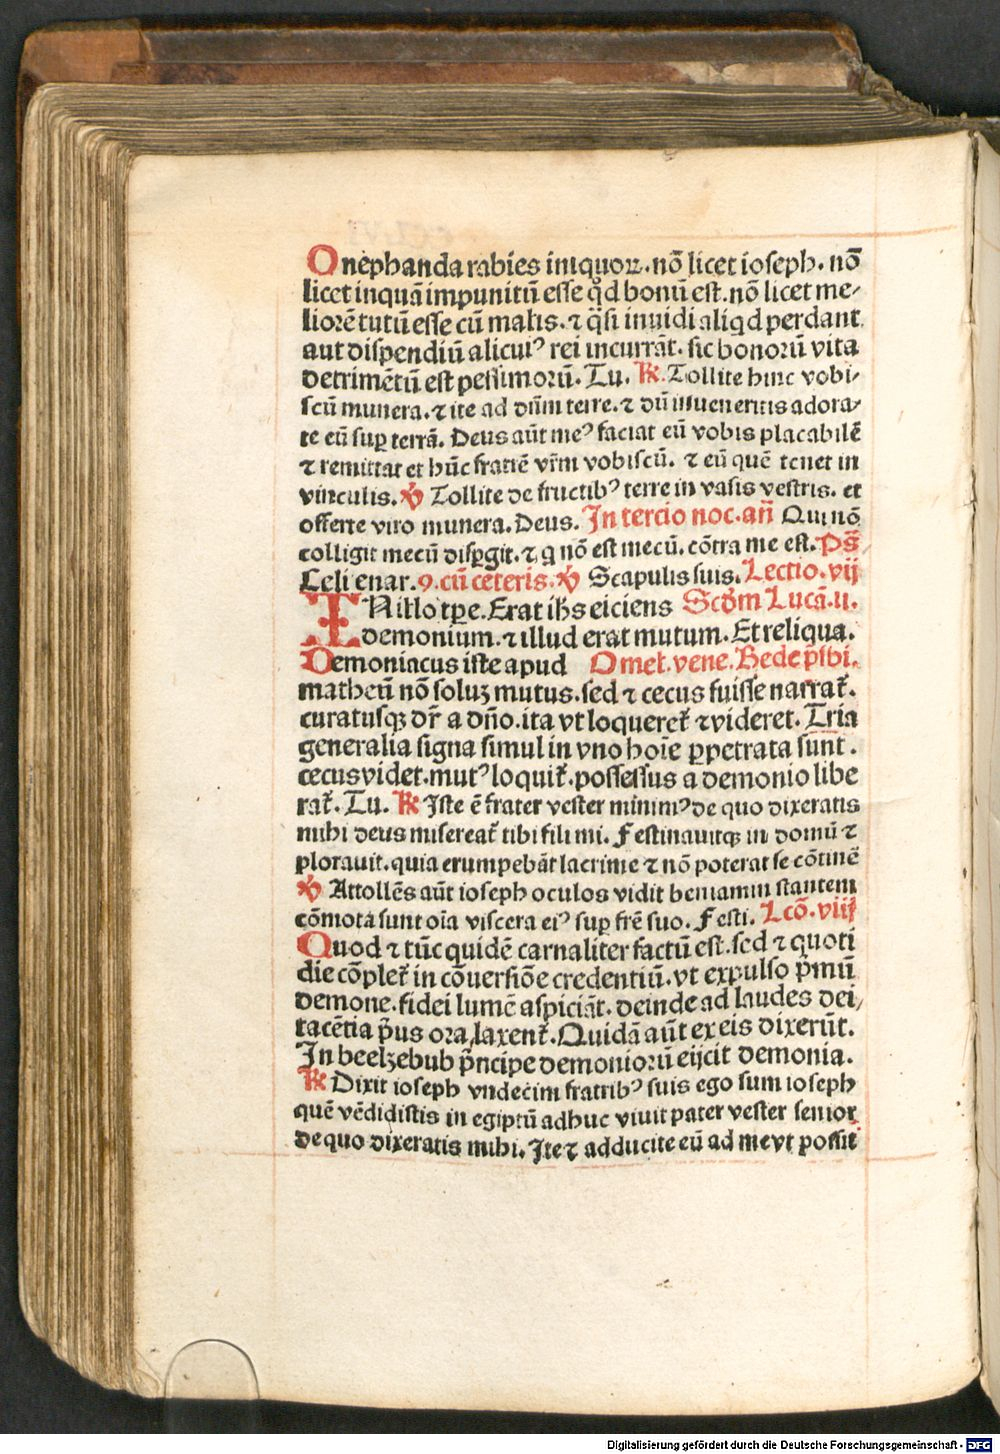 O nephanda rabies iniquoꝝ. nō licet ioseph. nō
licet inquā impunitū esse qd̛ bonū est. nō licet me-
liorē tutū esse cū malis. ⁊ q̄si inuidi aliqd perdant
aut dispendiū alicuiꝰ rei incurrāt. sic bonorū vita
detrimētū est pessimorū. Tu. ℟. Tollite hinc vobi-
scū munera. ⁊ ite ad dn̄m terre. ⁊ dū inueneritis adora-
te eū suꝑ terrā. Deus aūt meꝰ faciat eū vobis placabilē
⁊ remittat et hūc fratrē vr̄m vobiscū. ⁊ eū quē tenet in
vinculis. ℣ Tollite de fructibꝰ terre in vasis vestris. et
offerte viro munera. Deus. In tercio noc. an̄ Qui nō
colligit mecū disꝑgit. ⁊ q nō est mecū. cōtra me est. Ps̄
Celi enar. 9. cū ceteris. ℣ Scapulis suis. Lectio. vij
IN illo tꝑe. Erat ih̄s eiciens Scd̄m Lucā. 11.
demonium. ⁊ illud erat mutum. Et reliqua.
Demoniacus iste apud Omel. vene. Bede p̄sbi.
matheū nō soluꝫ mutus. sed ⁊ cecus fuisse narrat᷑.
curatusqꝫ dr̄ a dn̄o. ita vt loqueret᷑ ⁊ videret. Tria
generalia signa simul in vno hoīe ꝑpetrata sunt.
cecus videt. mutꝰ loquit᷑. possessus a demonio libe
rat᷑. Tu. ℟ Iste ē frater vester minimꝰ de quo dixeratis
mihi deus misereat᷑ tibi fili mi. Festinauitqꝫ in domū ⁊
plorauit. quia erumpebāt lacrime ⁊ nō poterat se cōtinē
℣ Attollēs aūt ioseph oculos vidit beniamin stantem
cōmota sunt oīa viscera eiꝰ suꝑ fr̄e suo. Festi. Lcō. viij
Quod ⁊ tūc quidē carnaliter factū est. sed ⁊ quoti
die cōplet᷑ in cōuersiōe credentiū. vt expulso p̄mū
demone. fidei lumē aspiciāt. deinde ad laudes dei,
tacētia p̄us ora laxent᷑. Quidā aūt ex eis dixerūt.
In beelzebub p̄ncipe demoniorū eijcit demonia.
℟ Dixit ioseph vndecim fratribꝰ suis ego sum ioseph
quē vēdidistis in egiptū adhuc viuit pater vester senior
de quo dixeratis mihi. Ite ⁊ adducite eū ad me vt possit
Digitalisierung gefördert durch die Deutsche Forschungsgemeinschaft - DFG